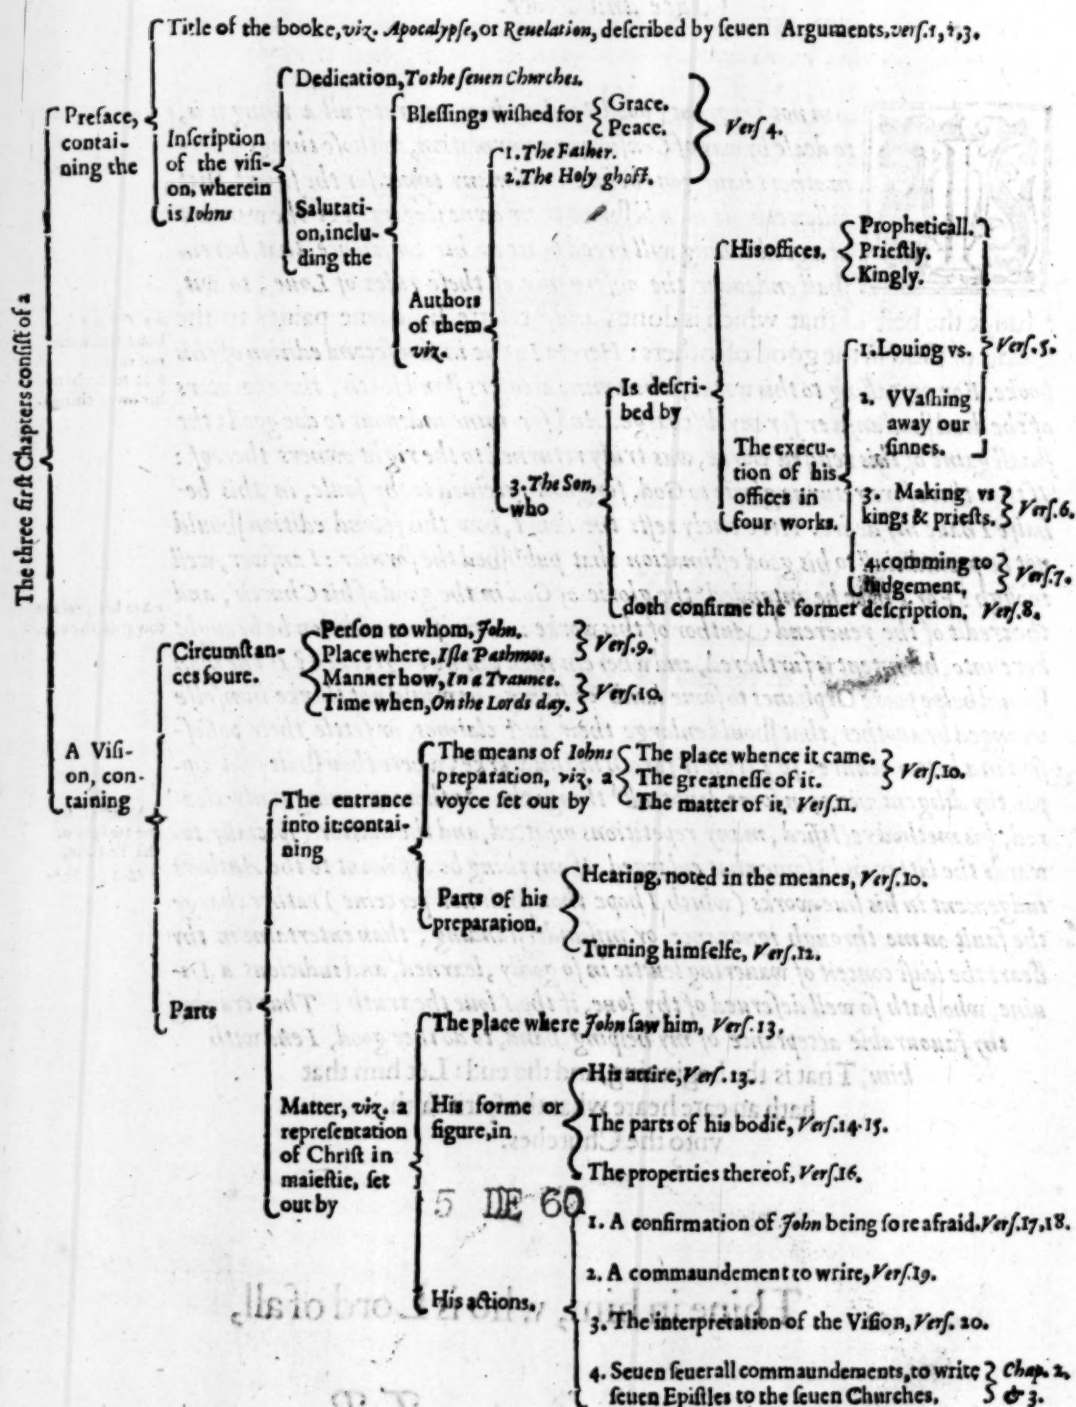 Title of the booke, viz. Apocalypſe, or Reuelation, deſcribed by ſeuen Arguments, verſ. 1, 2, 3.
The three firſt Chapters conſiſt of a
Preface,
contai-
ning the
Inſcription
of the viſi-
on, wherein
is Iohns
Dedication, To the ſeuen Churches.
Salutati-
on, inclu-
ding the
Bleſſings wiſhed for
Grace.
Peace.
Verſ 4.
Authors
of them
viz.
1. The Father.
2. The Holy ghoſt.
3. The Son,
who
Is deſcri-
bed by
His offices.
Propheticall.
Prieſtly.
Kingly.
The execu-
tion of his
offices in
four works.
1. Louing vs.
2. VVaſhing
away our
ſinnes.
Verſ. 5.
3. Making vs
kings & prieſts.
Verſ. 6.
4. comming to
Iudgement,
Verſ. 7.
doth confirme the former deſcription. Verſ. 8.
A Viſi-
on, con-
taining
Circumſtan-
ces foure.
Perſon to whom, John.
Place where, Iſle Pathmos.
Verſ. 9.
Manner how, In a Traunce.
Time when, On the Lords day.
Verſ. 10.
Parts
The entrance
into it: contai-
ning
The means of Iohns
preparation, viz. a
voyce ſet out by
The place whence it came.
The greatneſſe of it.
Verſ. 10.
The matter of it, Verſ. 11.
Parts of his
preparation.
Hearing, noted in the meanes, Verſ. 10.
Turning himſelfe, Verſ. 12.
Matter, viz. a
repreſentation
of Chriſt in
maieſtie, ſet
out by
The place where John ſaw him, Verſ. 13.
His forme or
figure, in
His attire, Verſ. 13.
The parts of his bodie, Verſ. 14. 15.
The properties thereof, Verſ. 16.
5 DE 60
His actions.
1. A confirmation of John being ſore afraid. Verſ. 17, 18.
2. A commaundement to write, Verſ. 19.
3. The interpretation of the Viſion, Verſ. 20.
4. Seuen ſeuerall commaundements, to write
ſeuen Epiſtles to the ſeuen Churches.
Chap. 2.
& 3.